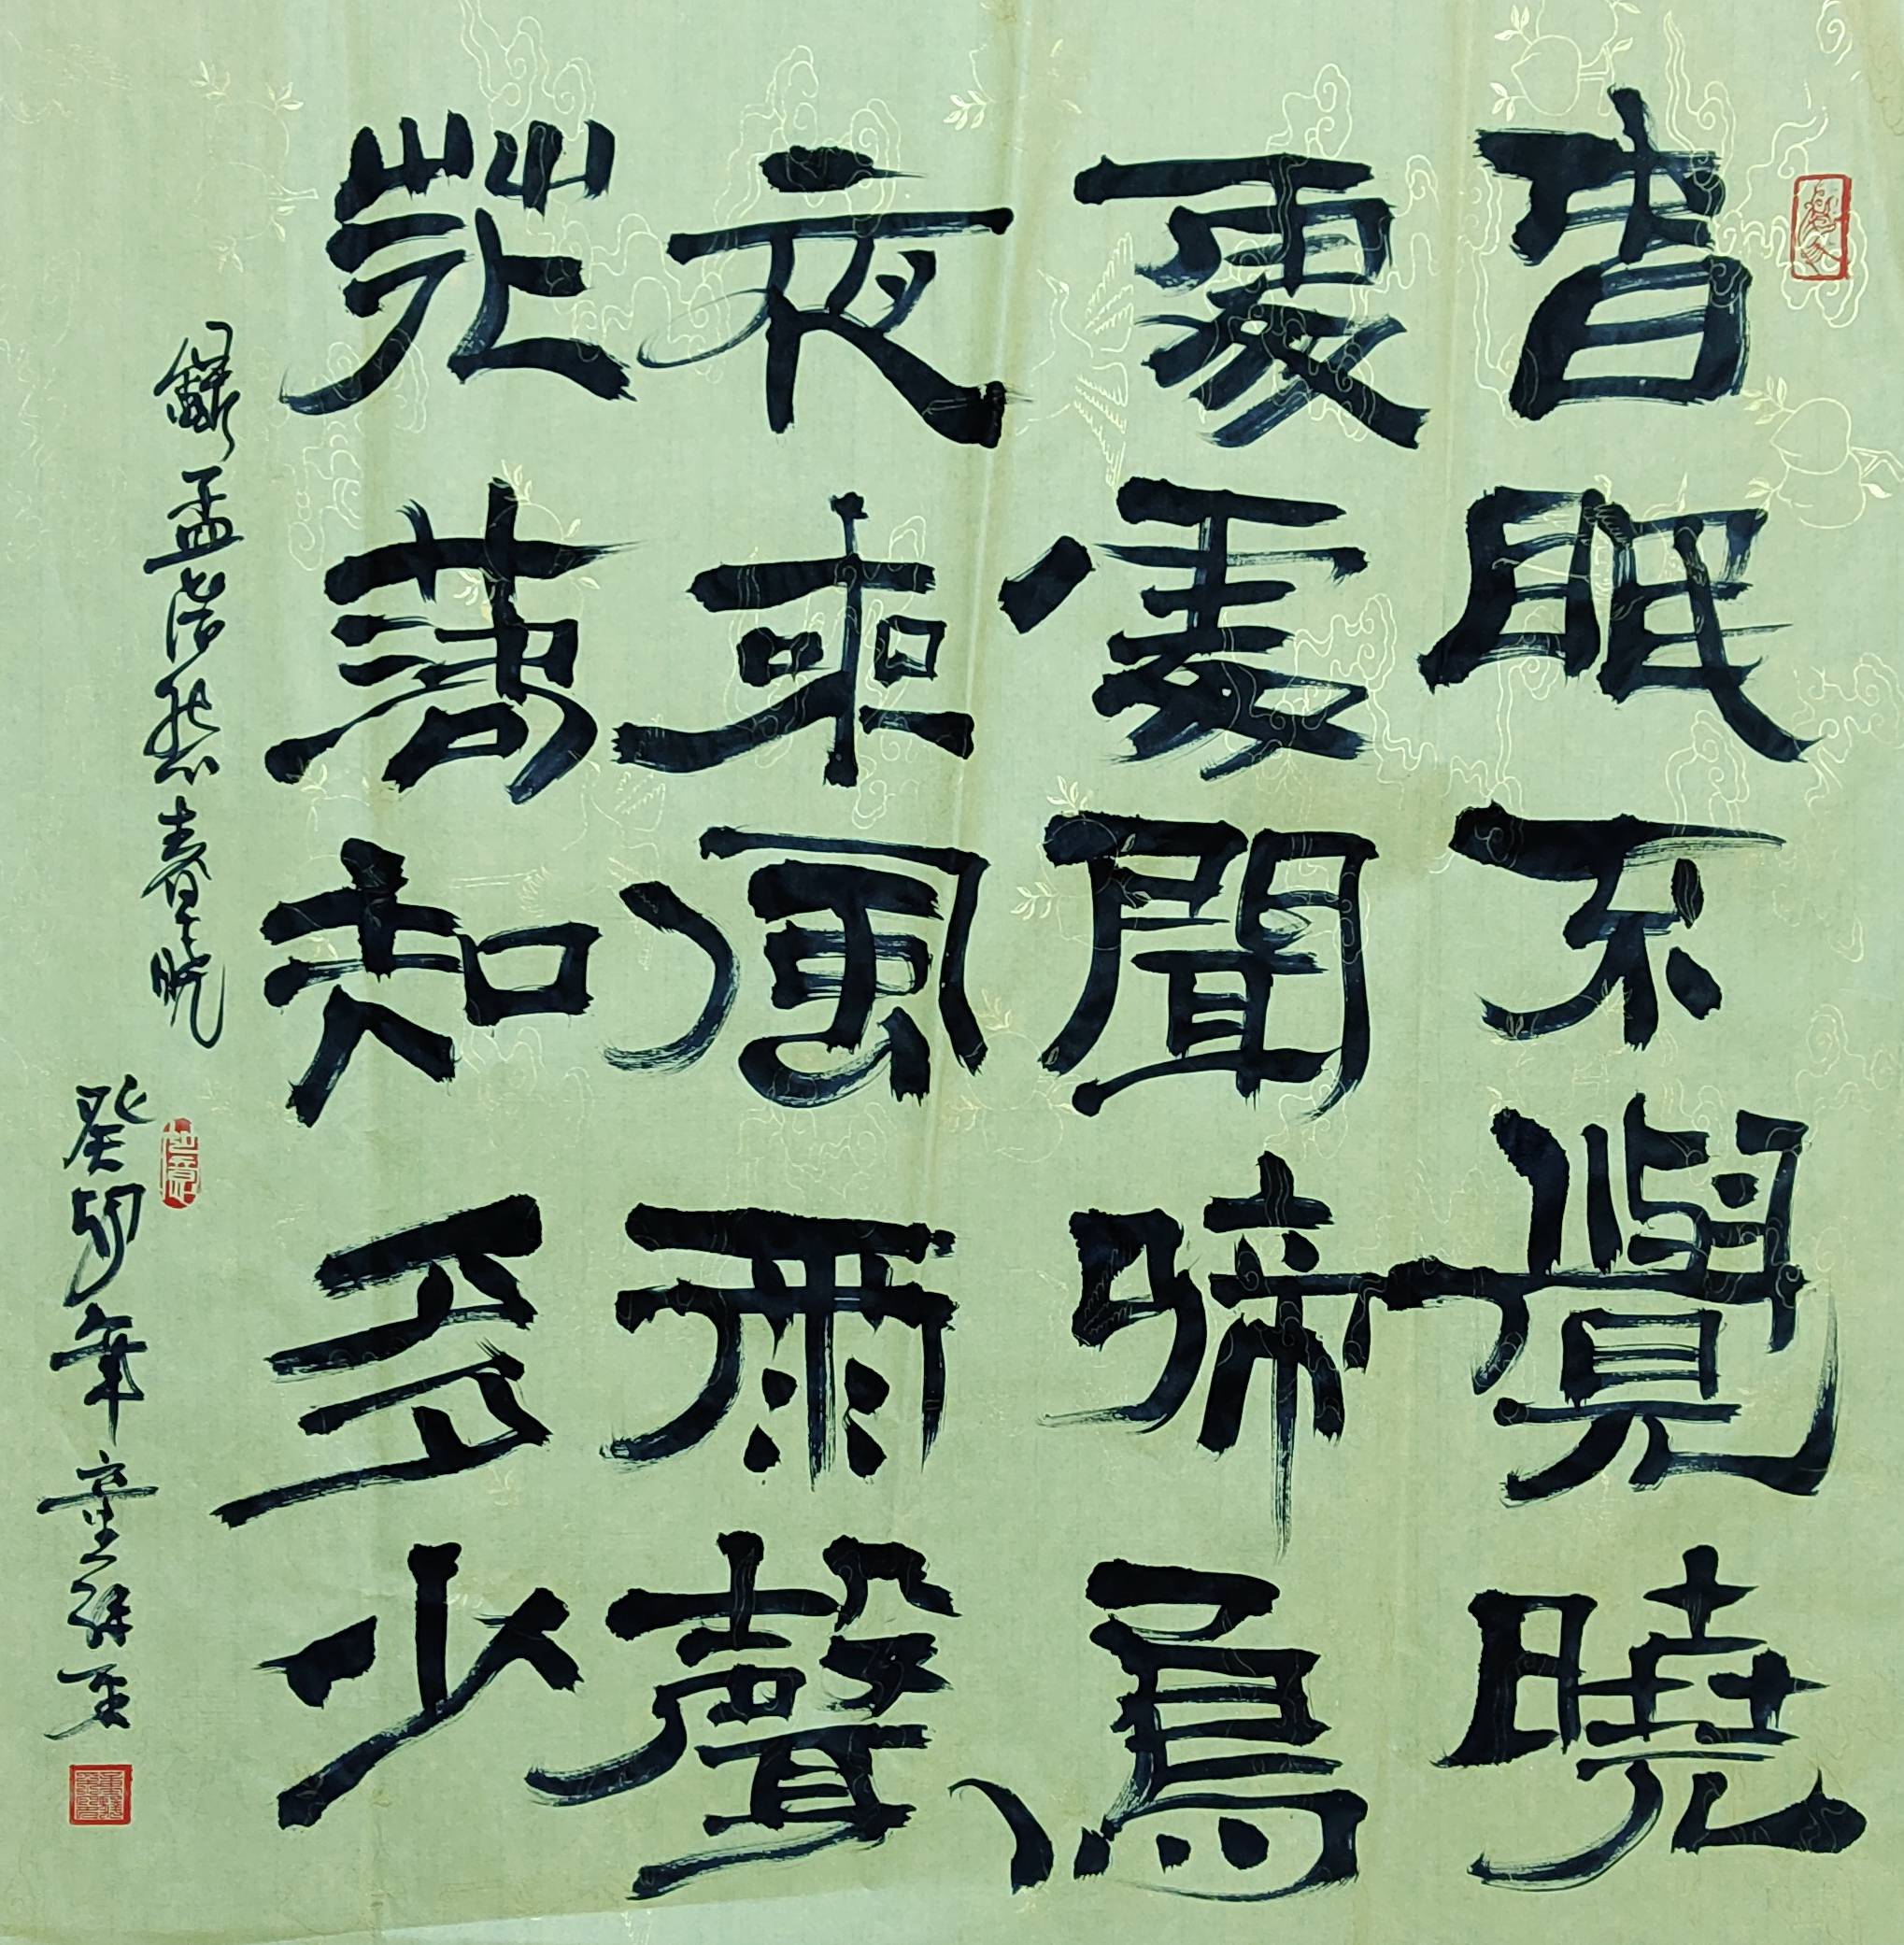 春眠不覺曉
處處聞啼鳥
夜來風雨聲
花落知多少
錄孟浩然春曉
癸卯年 童